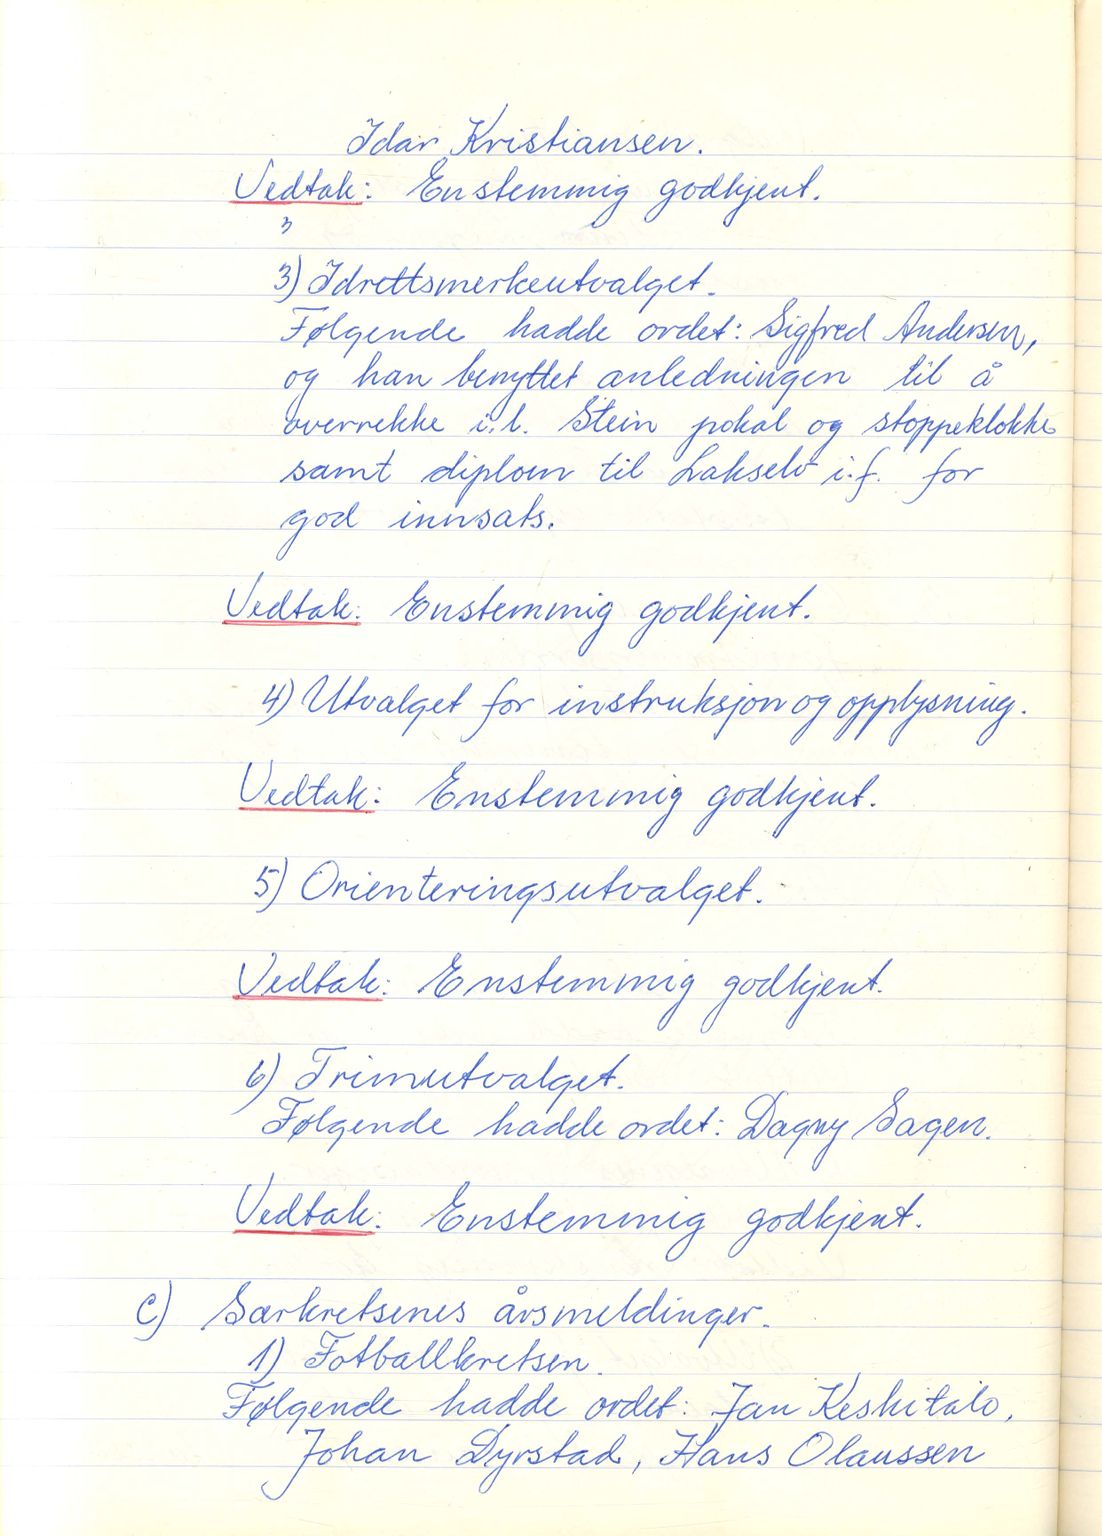 Idar Kristiansen.
Vedtak: Enstemmig godkjent.
3
3) Idrettsmerkeutvalget.
Følgende hadde ordet: Sigfred Andersen,
og han benyttet anledningen til å
overrekke i.l. Stein pokal og stoppeklokke
samt diplom til Lakselv i.f. for
god innsats.
Vedtak: Enstemmig godkjent.
4) Utvalget for instruksjon og opplysning.
Vedtak: Enstemmig godkjent.
5) Orienteringsutvalget.
Vedtak: Enstemmig godkjent.
6) Trimutvalget.
Følgende hadde ordet: Dagny Sagen.
Vedtak: Enstemmig godkjent.
C) Særkretsenes årsmeldinger.
1) Fotballkretsen.
Følgende hadde ordet: Jan Keskitalo,
Johan Dyrstad, Hans Olaussen